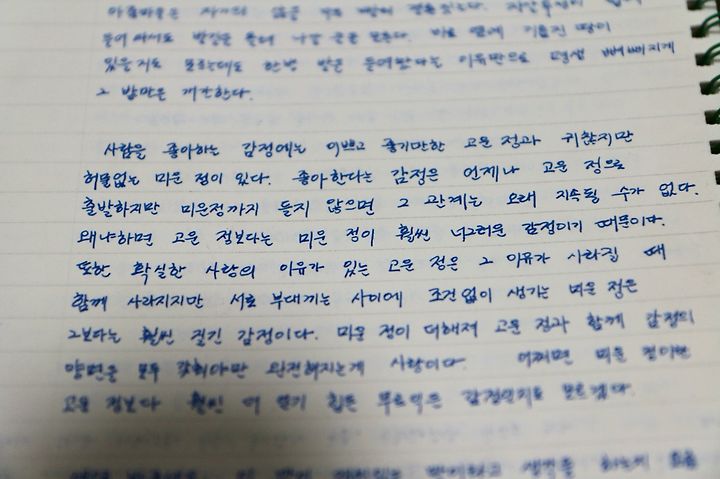 들어와서도
있을지도 모르는데도 한번 발을 들여놨다는 이유만으로 평생 뼈빠지게
그 밭만을 개간한다.
사람을 좋아하는 감정에는 이쁘고 좋기만한 고운 정과 귀찮지만
허물없는 미운 정이 있다. 좋아한다는 감정은 언제나 고운 정으로
출발하지만 미운정까지 들지 않으면 그 관계는 오래 지속될 수가 없다.
왜냐하면 고운 정보다는 미운 정이 훨씬 너그러운 감정이기 때문이다.
또한 확실한 사랑의 이유가 있는 고운 정은 그 이유가 사라질 때
함께 사라지지만 서로 부대끼는 사이에 조건없이 생기는 미운 정은
그보다는 훨씬 질긴 감정이다. 미운 정이 더해져 고운 정과 함께 감정의
양면을 모두 갖춰야만 완전해지는게 사랑이다. 어쩌면 미운 정이란
고운 정보다 훨씬 더 얻기 힘든 무르익은 감정인지도 모르겠다.